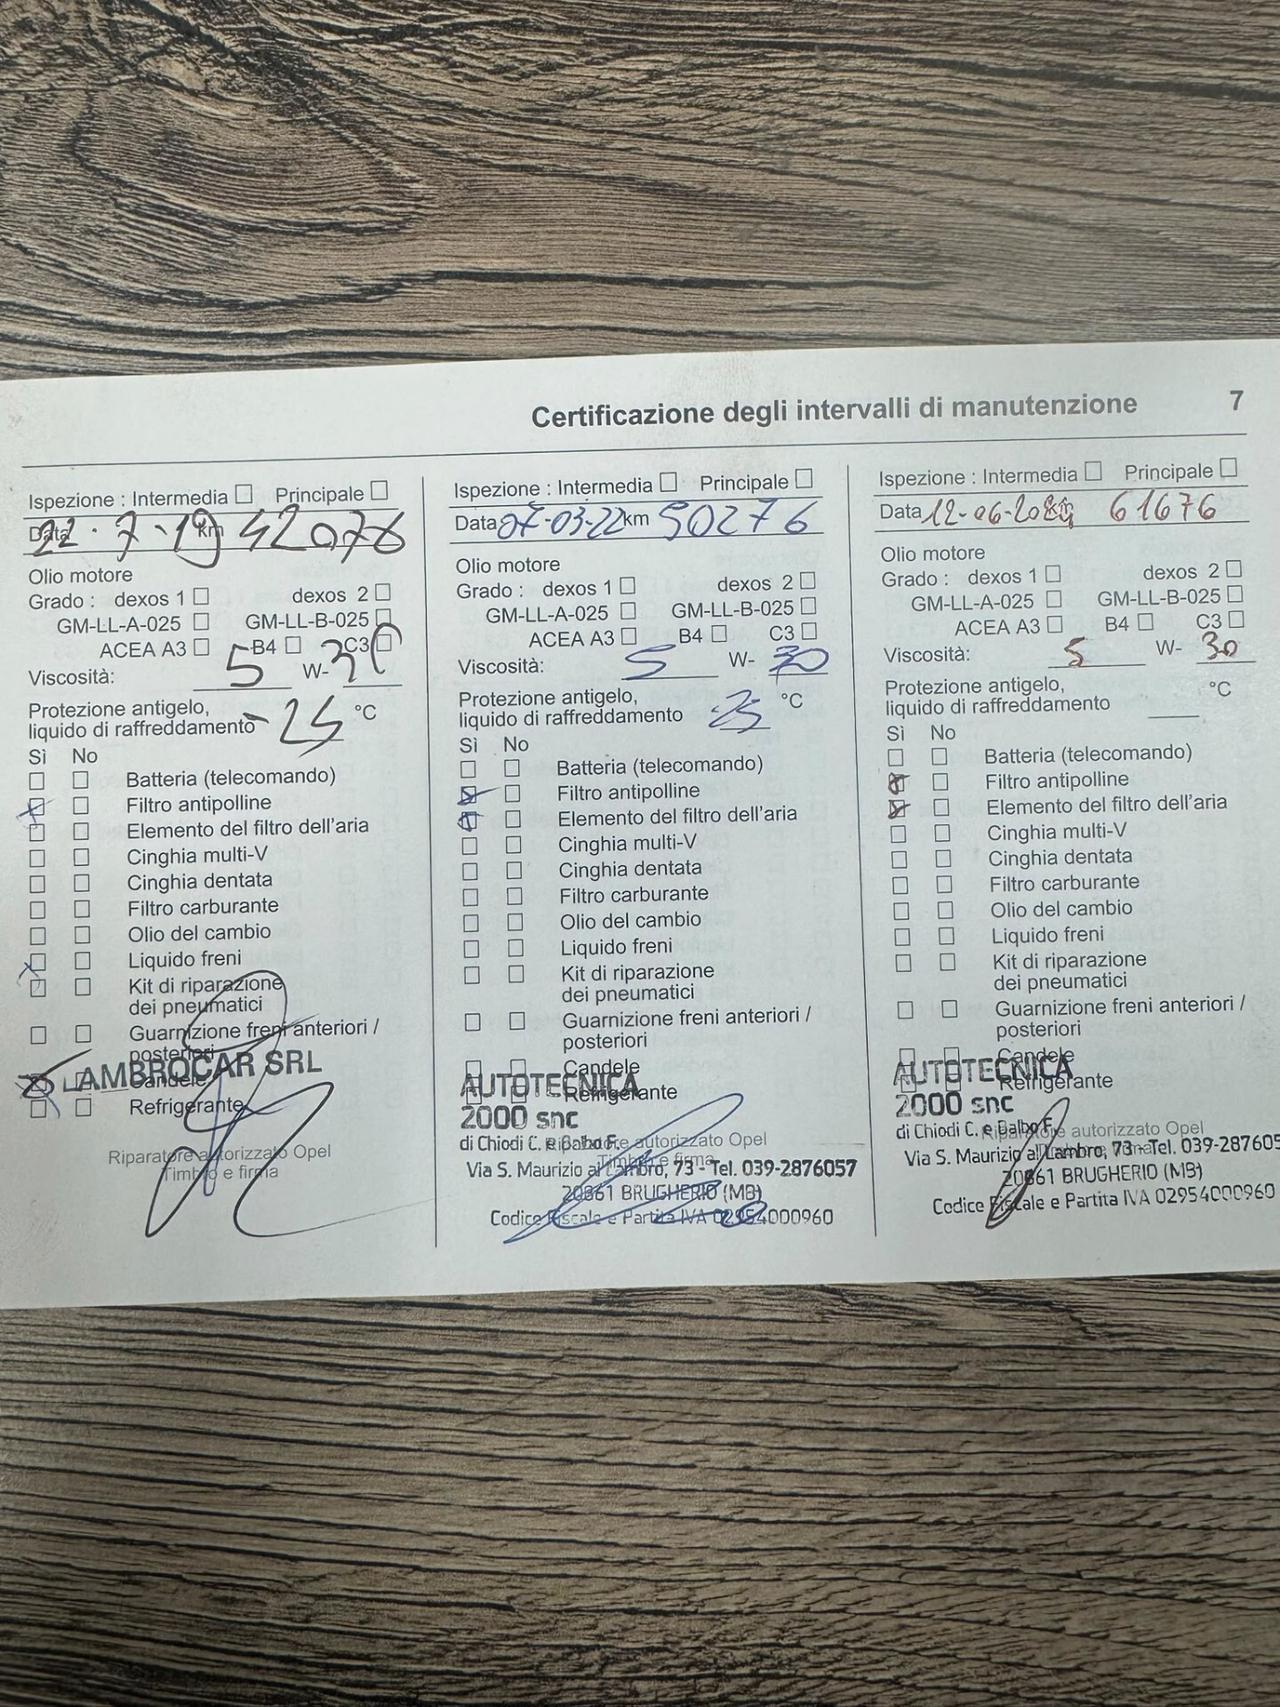 Certificazione degli intervalli di manutenzione 7
Ispezione : Intermedia Principale
Data 22.7.19 km 42076
Olio motore
Grado : dexos 1 dexos 2
GM-LL-A-025 GM-LL-B-025
ACEA A3 B4 C3
Viscosità: 5 W-30
Protezione antigelo,
liquido di raffreddamento -25 °C
Sì No
Batteria (telecomando)
Filtro antipolline
Elemento del filtro dell'aria
Cinghia multi-V
Cinghia dentata
Filtro carburante
Olio del cambio
Liquido freni
Kit di riparazione
dei pneumatici
Guarnizione freni anteriori /
posteriori
Candele
LAMBROCAR SRL
Refrigerante
Riparatore autorizzato Opel
Timbro e firma
Ispezione : Intermedia Principale
Data 07-03-22 km 50276
Olio motore
Grado : dexos 1 dexos 2
GM-LL-A-025 GM-LL-B-025
ACEA A3 B4 C3
Viscosità: 5 W-30
Protezione antigelo,
liquido di raffreddamento -25 °C
Sì No
Batteria (telecomando)
Filtro antipolline
Elemento del filtro dell'aria
Cinghia multi-V
Cinghia dentata
Filtro carburante
Olio del cambio
Liquido freni
Kit di riparazione
dei pneumatici
Guarnizione freni anteriori /
posteriori
Candele
AUTOTECNICA
Refrigerante
2000 snc
di Chiodi C. e Balbo F.
Riparatore autorizzato Opel
Timbro e firma
Via S. Maurizio al Lambro, 73 - Tel. 039-2876057
20861 BRUGHERIO (MB)
Codice Fiscale e Partita IVA 02954000960
Ispezione : Intermedia Principale
Data 12-06-202 km 61676
Olio motore
Grado : dexos 1 dexos 2
GM-LL-A-025 GM-LL-B-025
ACEA A3 B4 C3
Viscosità: 5 W-30
Protezione antigelo,
liquido di raffreddamento °C
Sì No
Batteria (telecomando)
Filtro antipolline
Elemento del filtro dell'aria
Cinghia multi-V
Cinghia dentata
Filtro carburante
Olio del cambio
Liquido freni
Kit di riparazione
dei pneumatici
Guarnizione freni anteriori /
posteriori
Candele
AUTOTECNICA
Refrigerante
2000 snc
di Chiodi C. e Balbo F.
Riparatore autorizzato Opel
Via S. Maurizio al Lambro, 73 - Tel. 039-287605
20861 BRUGHERIO (MB)
Codice Fiscale e Partita IVA 02954000960